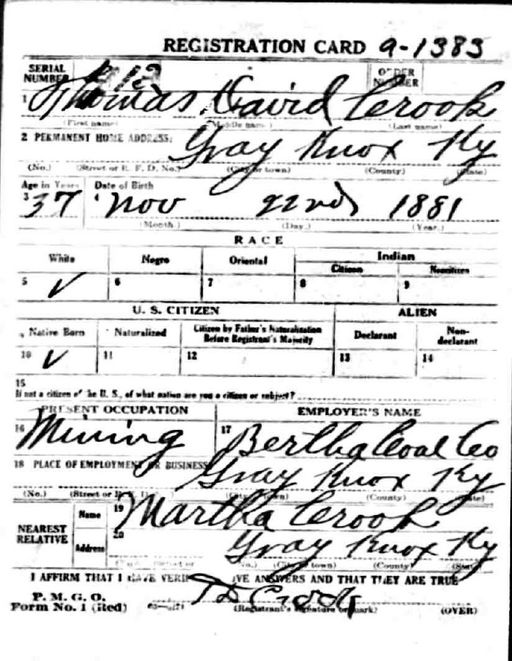 REGISTRATION CARD 9-1383
SERIAL NUMBER
ORDER NUMBER
1 Thomas David Crook
(First name) (Middle name) (Last name)
2 PERMANENT HOME ADDRESS: Gray Knox Ky
(No.) (Street or R. F. D. No.) (City or town) (County) (State)
Age in Years Date of Birth
3 37 4 Nov 22nd 1881
(Month.) (Day.) (Year.)
RACE
White Negro Oriental Indian
Citizen Noncitizen
5 ✓ 6 7 8 9
U. S. CITIZEN ALIEN
Native Born Naturalized Citizen by Father's Naturalization Before Registrant's Majority Declarant Non-declarant
10 ✓ 11 12 13 14
15
If not a citizen of the U. S., of what nation are you a citizen or subject?
PRESENT OCCUPATION EMPLOYER'S NAME
16 Mining 17 Bertha Coal Co
18 PLACE OF EMPLOYMENT OR BUSINESS Gray Knox Ky
(No.) (Street or (City or town) (County) (State)
NEAREST RELATIVE Name 19 Martha Crook
Address 20 Gray Knox Ky
(No.) (City or town) (County) (State)
I AFFIRM THAT I HAVE VERIFIED ABOVE ANSWERS AND THAT THEY ARE TRUE
P. M. G. O.
Form No. 1 (Red) T D Crook
(Registrant's signature or mark) (OVER)